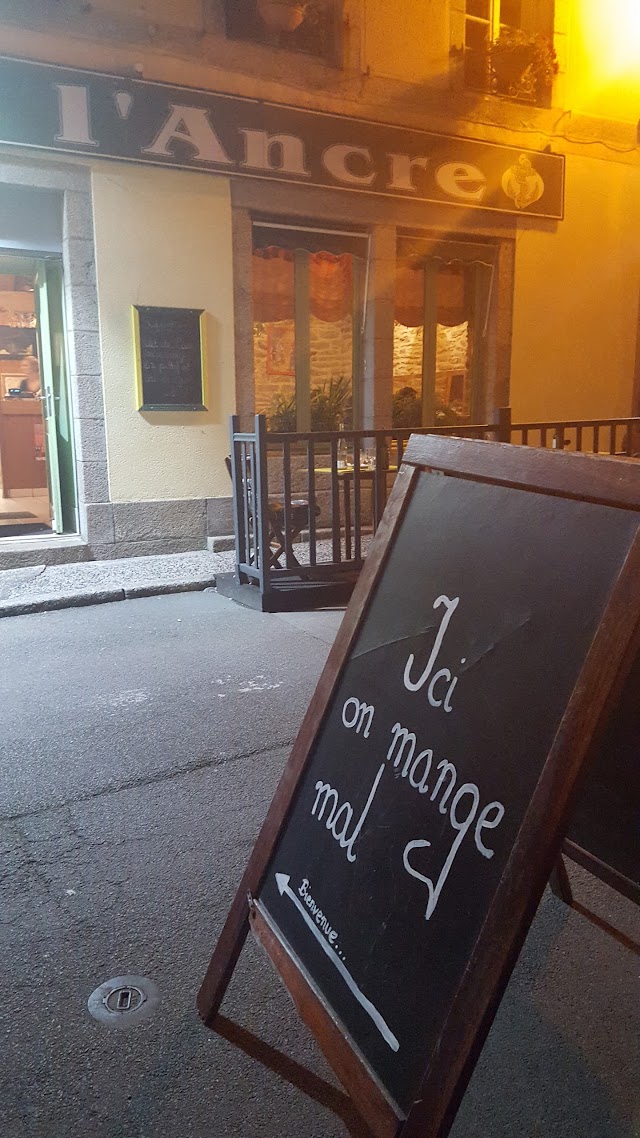 l'Ancre
Ici
on mange
mal
Bienvenue...